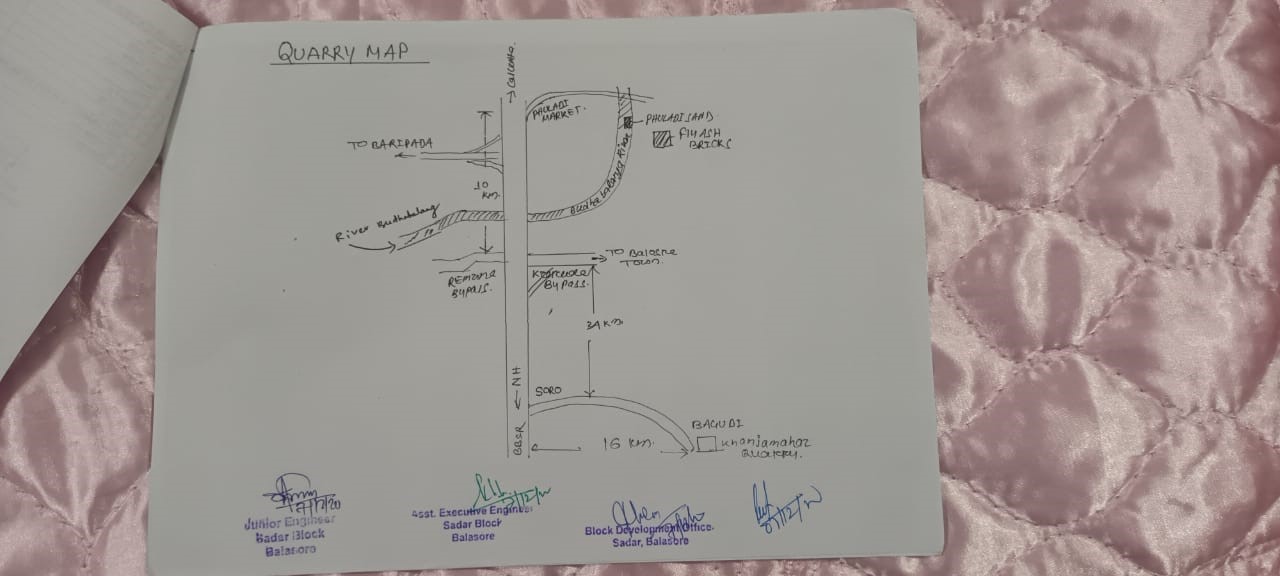 QUARRY MAP
→ Calcutta.
PHULADI
MARKET.
PHULADI SAND
FlYASH
BRICKS
TO BARIPADA
10
KM
Budha balanga River
River Budhabalang
TO Balasore
Town.
REMUNA
BYPASS.
BYPASS.
34 KM
← NH
SORO
BBSR
16 KM.
BAGUDI
Khanjamahar
Quarry.
Junior Engineer
Sadar Block
Balasore
Asst. Executive Engineer
Sadar Block
Balasore
Block Development Office.
Sadar, Balasore